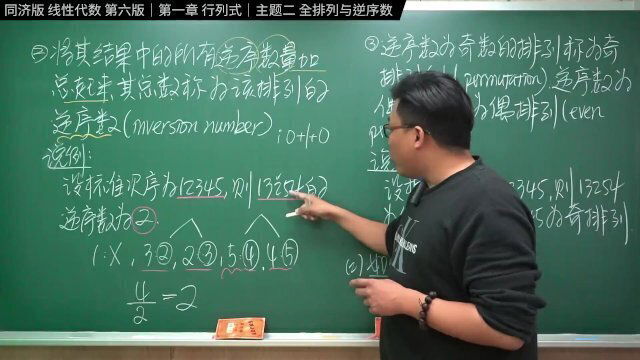 同济版 线性代数 第六版｜第一章 行列式｜主题二 全排列与逆序数
②将其结果中的所有逆序数量加
总起来,其总数称为该排列的
逆序数(inversion number)
i 0+1+0
说例:
设标准次序为12345,则13254的
逆序数为②
1:X, 3:②, 2:③, 5:④, 4:⑤
4/2=2
③逆序数为奇数的排列称为奇
(permutation),逆序数为
为偶排列(even
2345,则13254
为奇排列
(c)